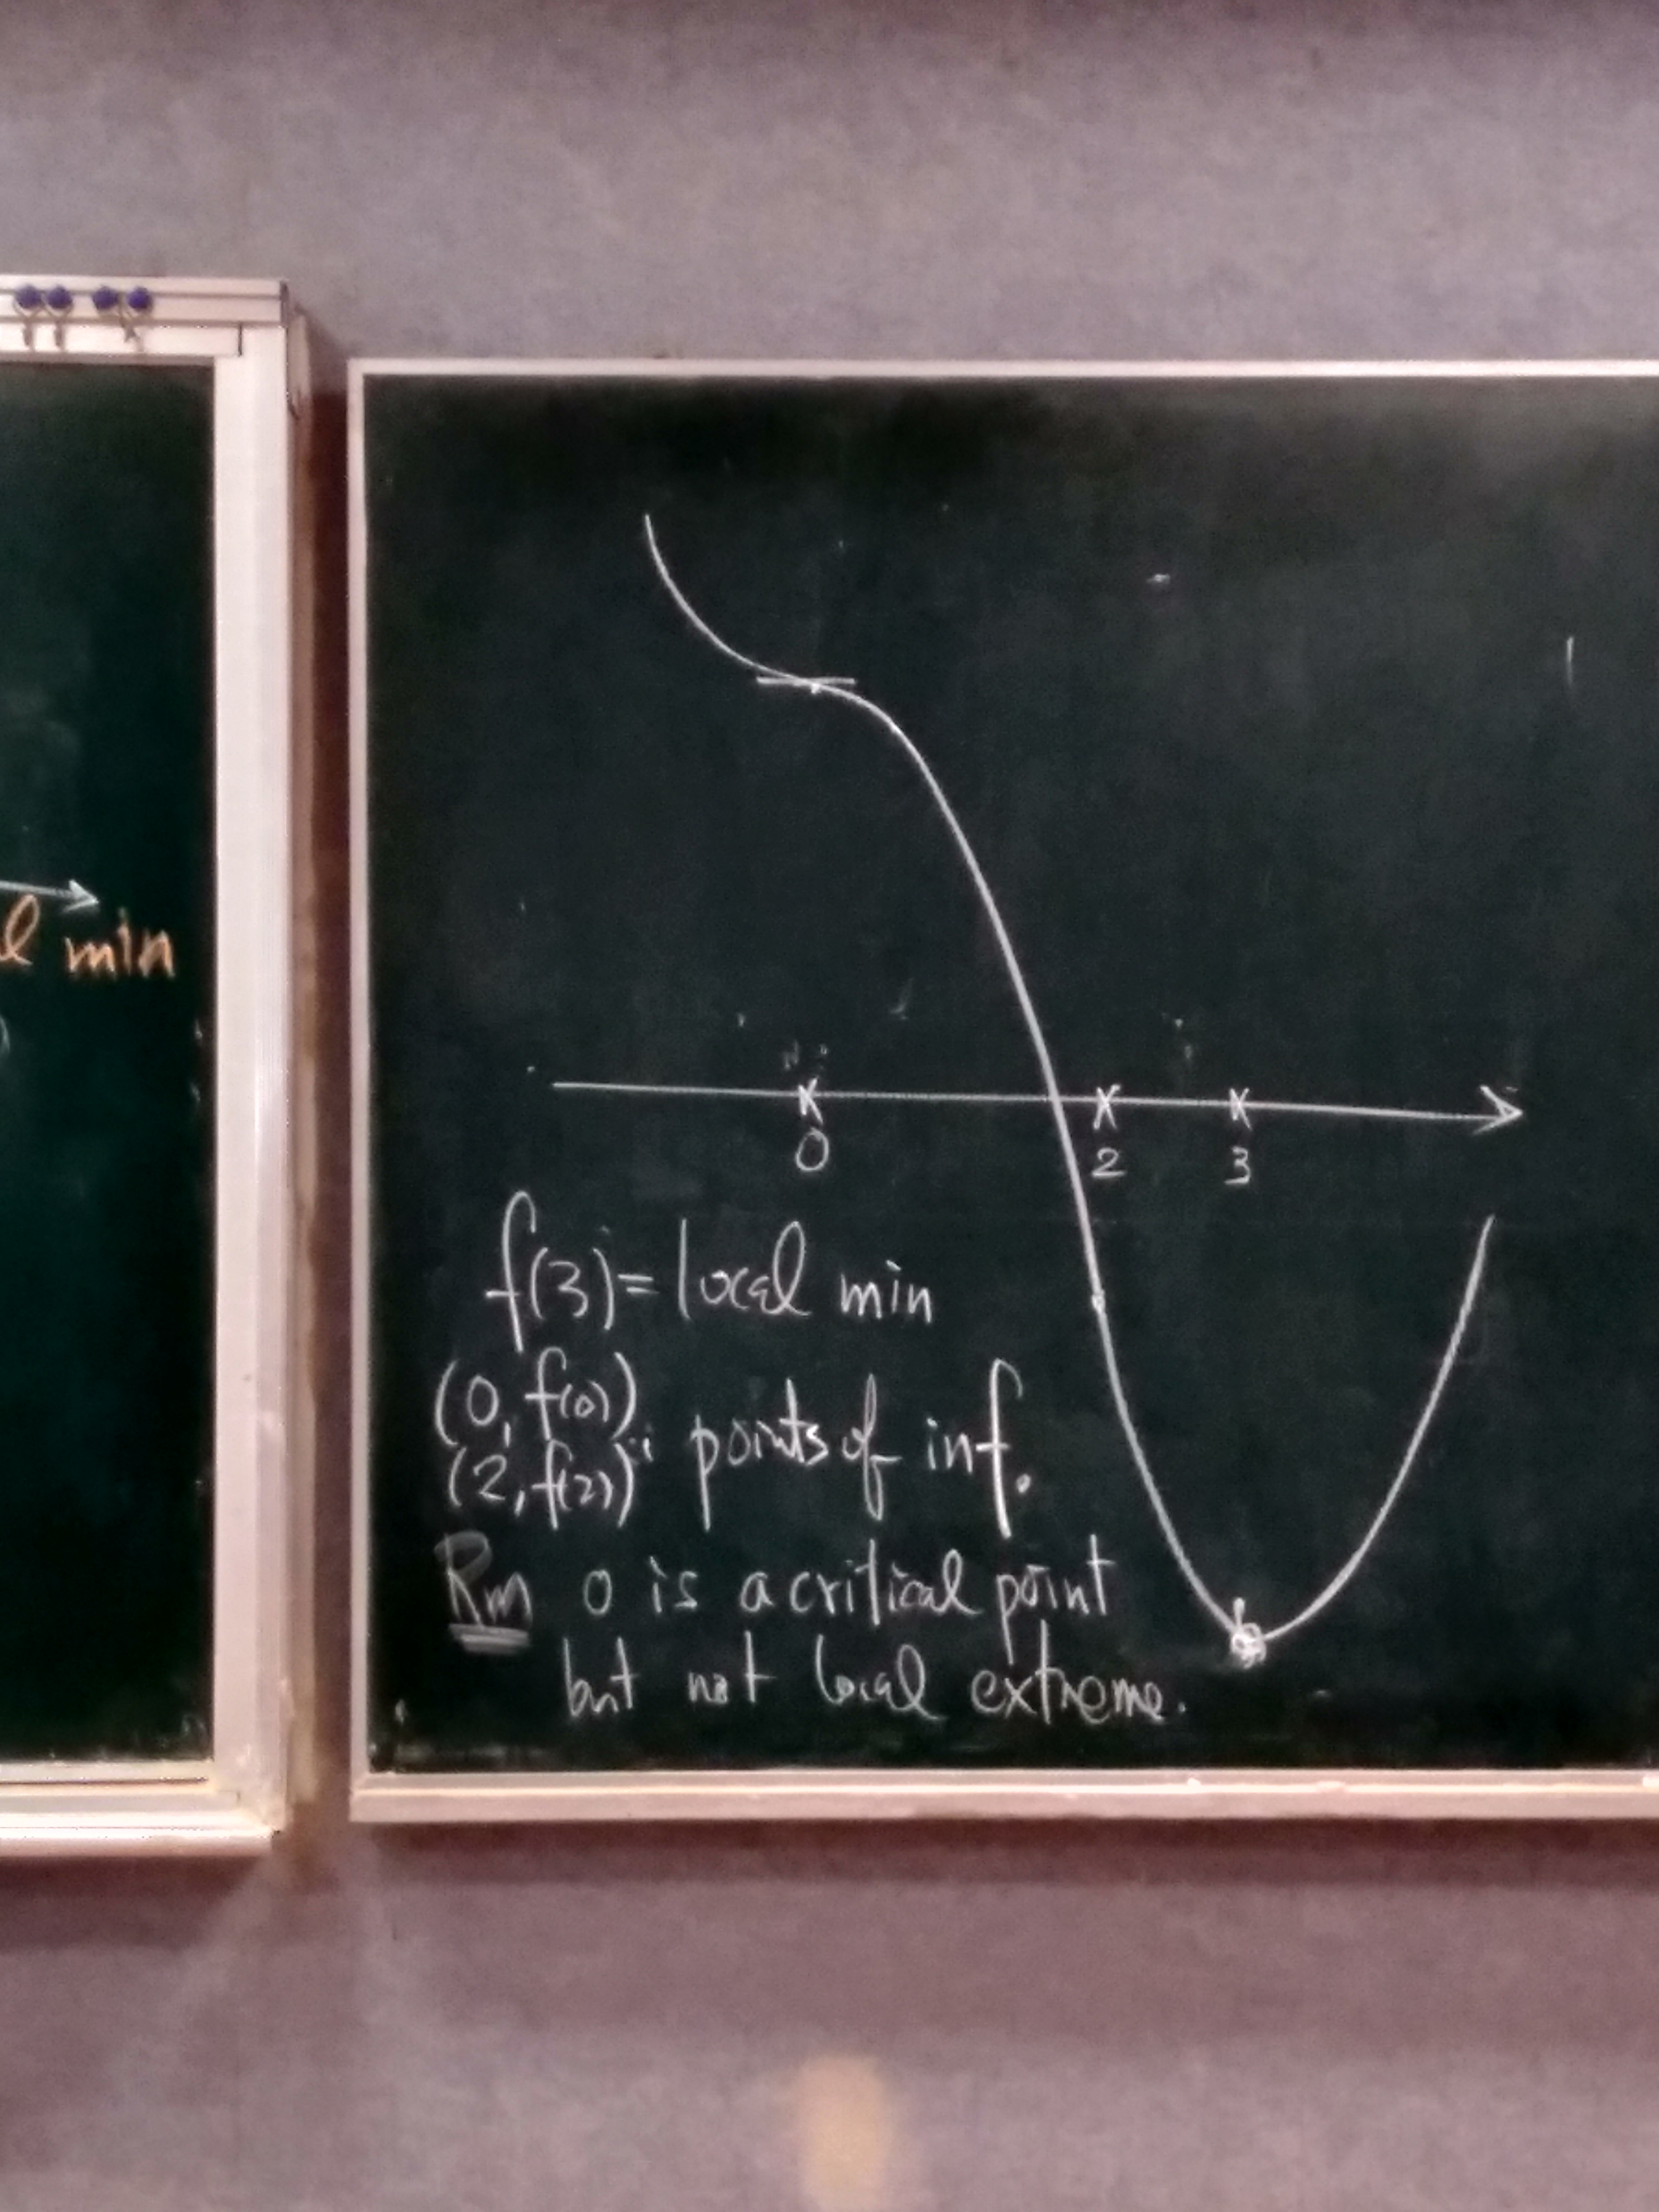 l min
0 2 3
f(3)= local min
(0, f(0))
(2, f(2)) : points of inf.
Rm 0 is a critical point
but not local extreme.